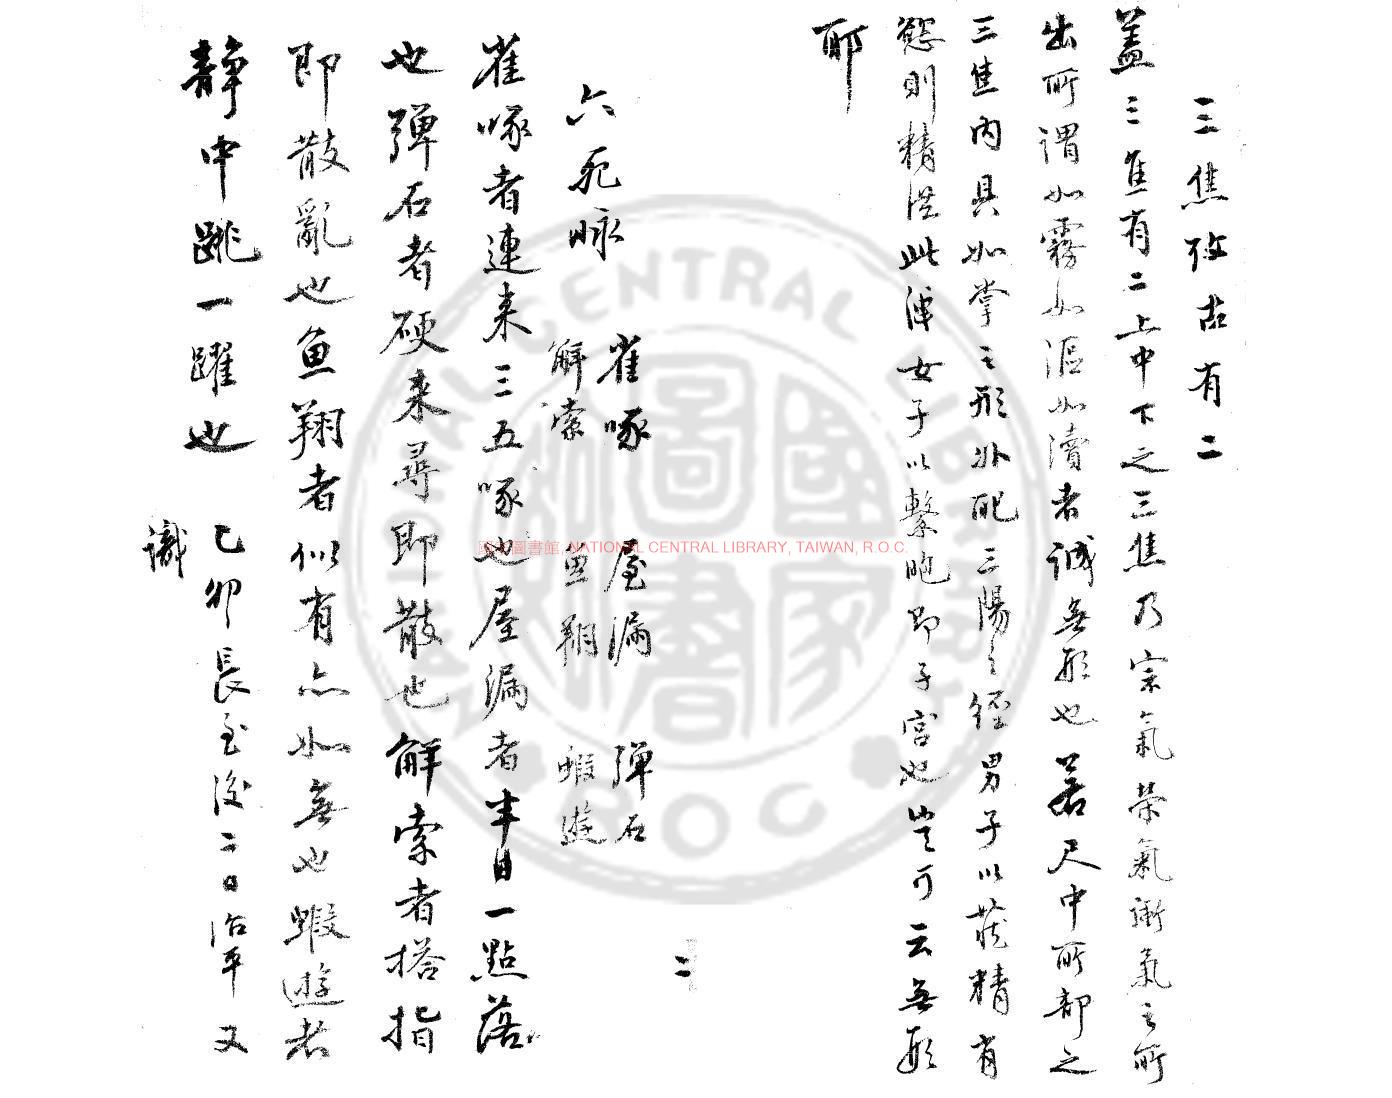 三焦攷古有二
蓋三焦有二上中下之三焦乃宗氣榮氣衛氣之所
出所謂如霧如漚如瀆者誠無形也若尺中所部之
三焦內具如掌之形外配三陽之經男子以藏精有
慾則精泄此渾女子以繫胞即子宮也豈可云無形
耶
六死脉
雀啄 屋漏 弹石
解索 魚翔 蝦遊
雀啄者連来三五啄也屋漏者半日一點落
也弹石者硬来尋即散也解索者搭指
即散亂也魚翔者似有亦如無也蝦遊者
静中跳一躍也
己卯長至後二日治平又
識
二
國家圖書館, NATIONAL CENTRAL LIBRARY, TAIWAN, R.O.C.
NATIONAL CENTRAL LIBRARY
ROC
國家圖書